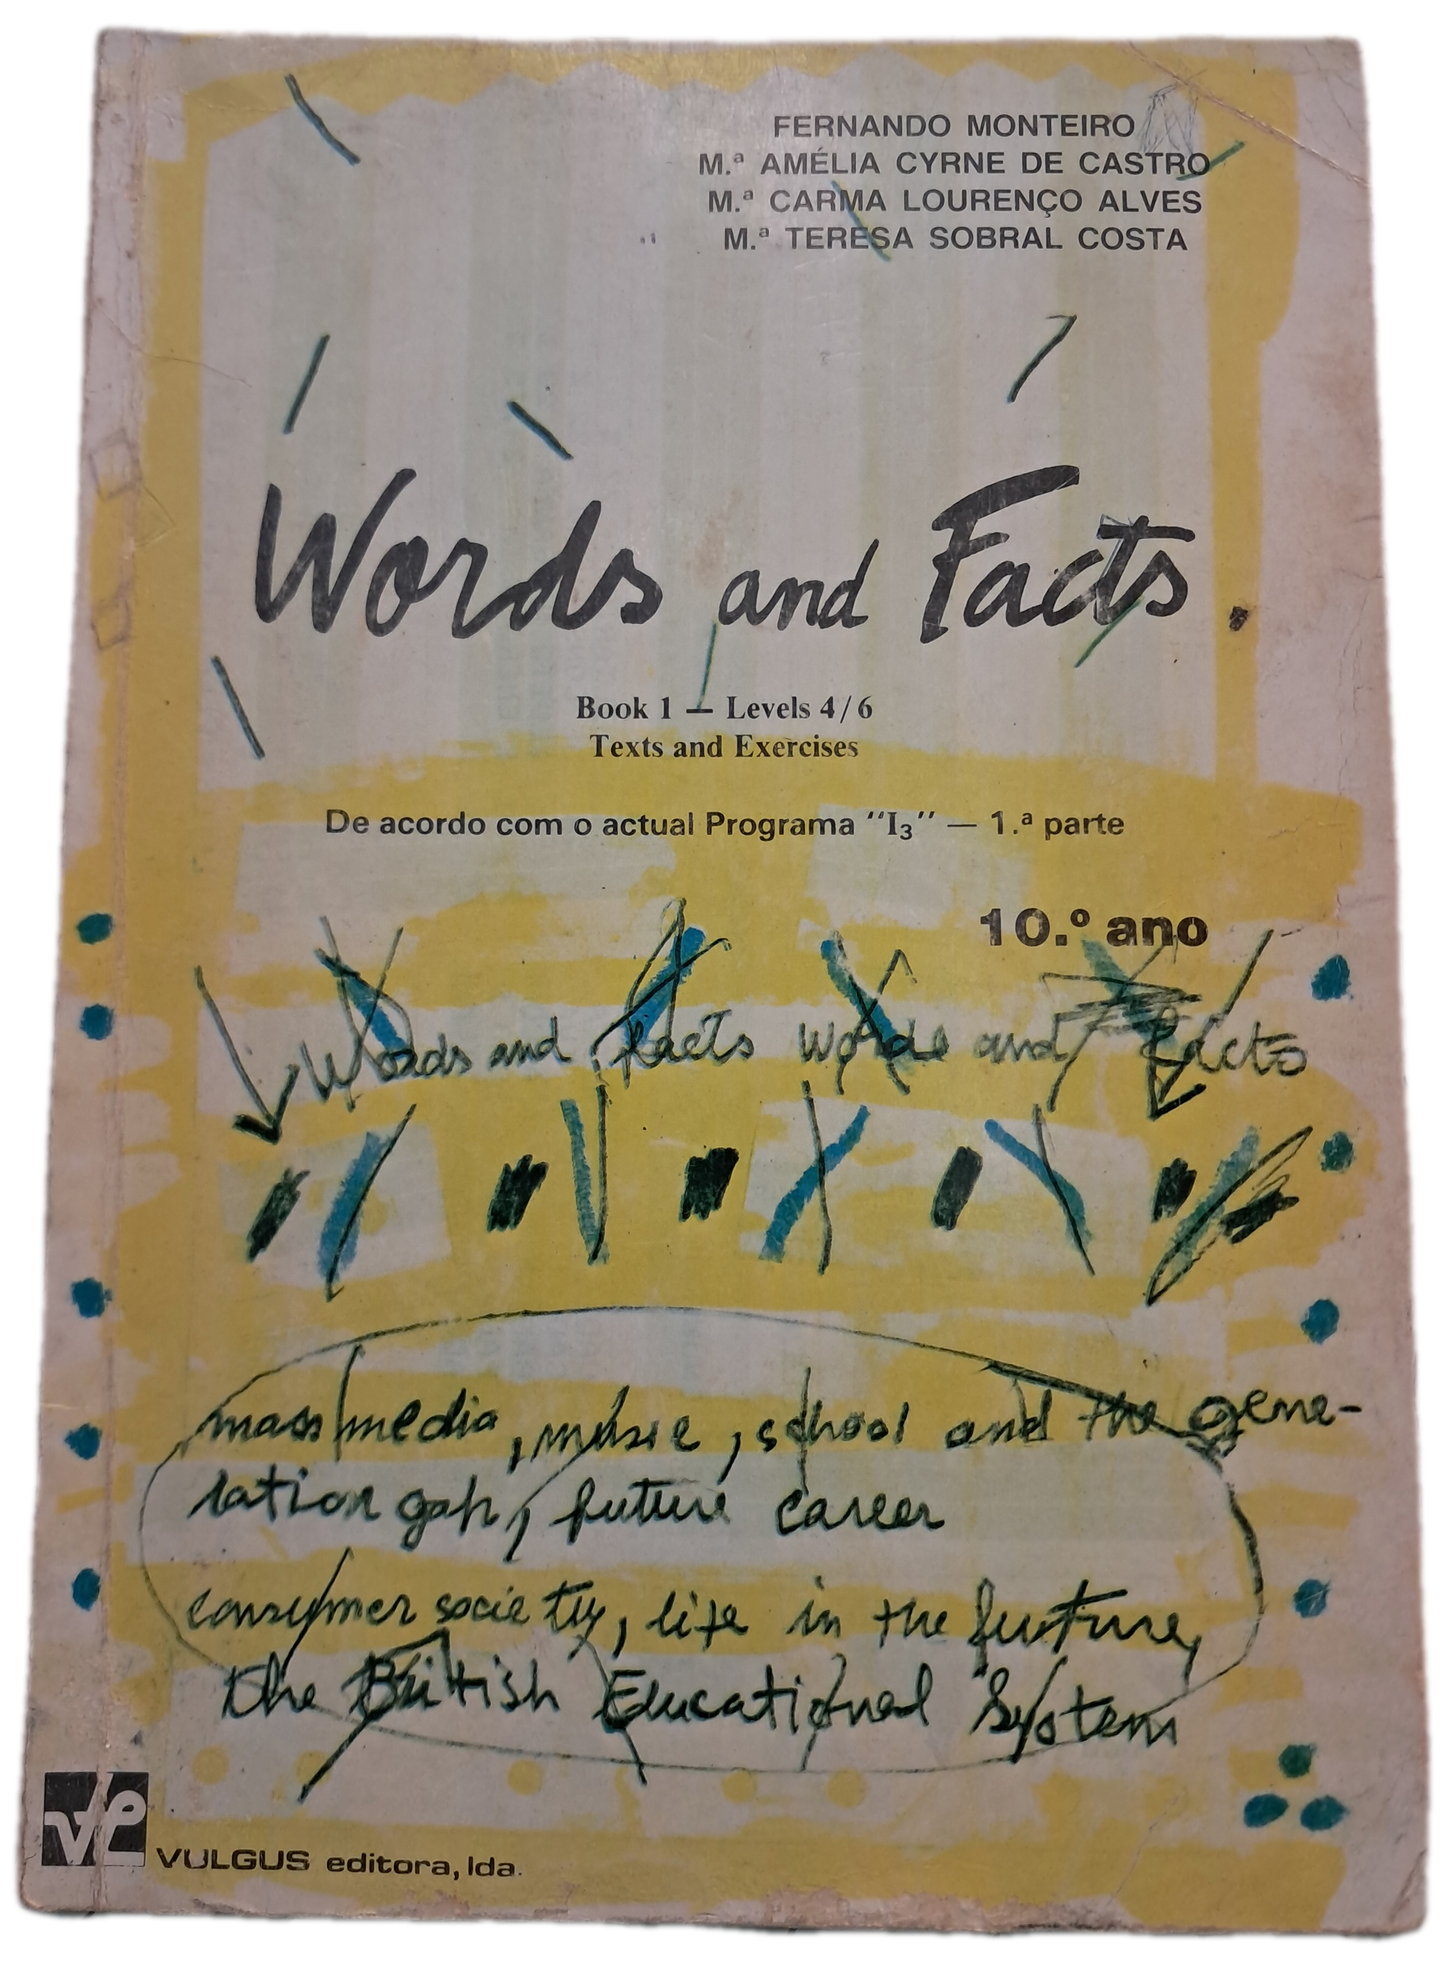 FERNANDO MONTEIRO
M.ª AMÉLIA CYRNE DE CASTRO
M.ª CARMA LOURENÇO ALVES
M.ª TERESA SOBRAL COSTA
Words and Facts.
Book 1 — Levels 4/6
Texts and Exercises
De acordo com o actual Programa "I3" — 1.ª parte
10.º ano
Words and facts words and facts
mass media, music, school and the gene-
ration gap, future career
consumer society, life in the furture,
the British Educational System
VULGUS editora, lda.